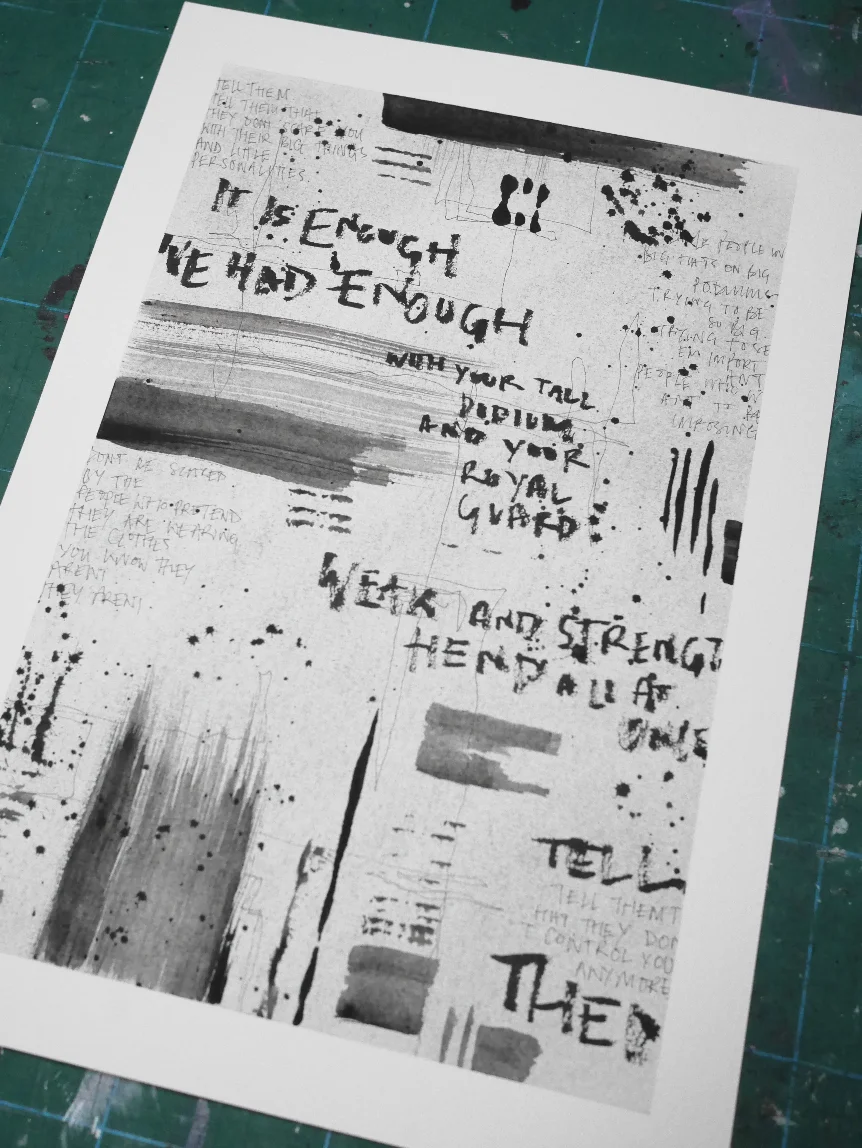 TELL THEM
TELL THEM THAT
THEY DONT SCARE YOU
WITH THEIR BIG THINGS
AND LITTLE
PERSONALITIES.
IT IS ENOUGH
I'VE HAD ENOUGH
WITH YOUR TALL
PODIUM
AND YOUR
ROYAL
GUARD
PEOPLE IN
BIG HATS ON BIG
PODIUMS
TRYING TO BE
SO BIG.
TRYING TO SE
EM IMPORT
ANT
PEOPLE WHO W
ANT TO BE
IMPOSING
DONT BE SCARED
BY THE
PEOPLE WHO PRETEND
THEY ARE WEARING
THE CLOTHES
YOU KNOW THEY
ARENT
THEY ARENT.
WEAK AND STRENGT
HEND ALL AT
ONCE
TELL
TELL THEM T
HAT THEY DON
T CONTROL YOU
ANYMORE
THEM